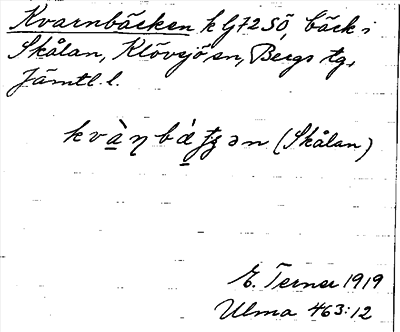 Kvarnbäcken k Gf72SÖ, bäck i
Skålan, Klövsjö sn, Bergs tg,
Jämtl. l.
(Skålan)
E. Terner 1919
Ulma 463:12